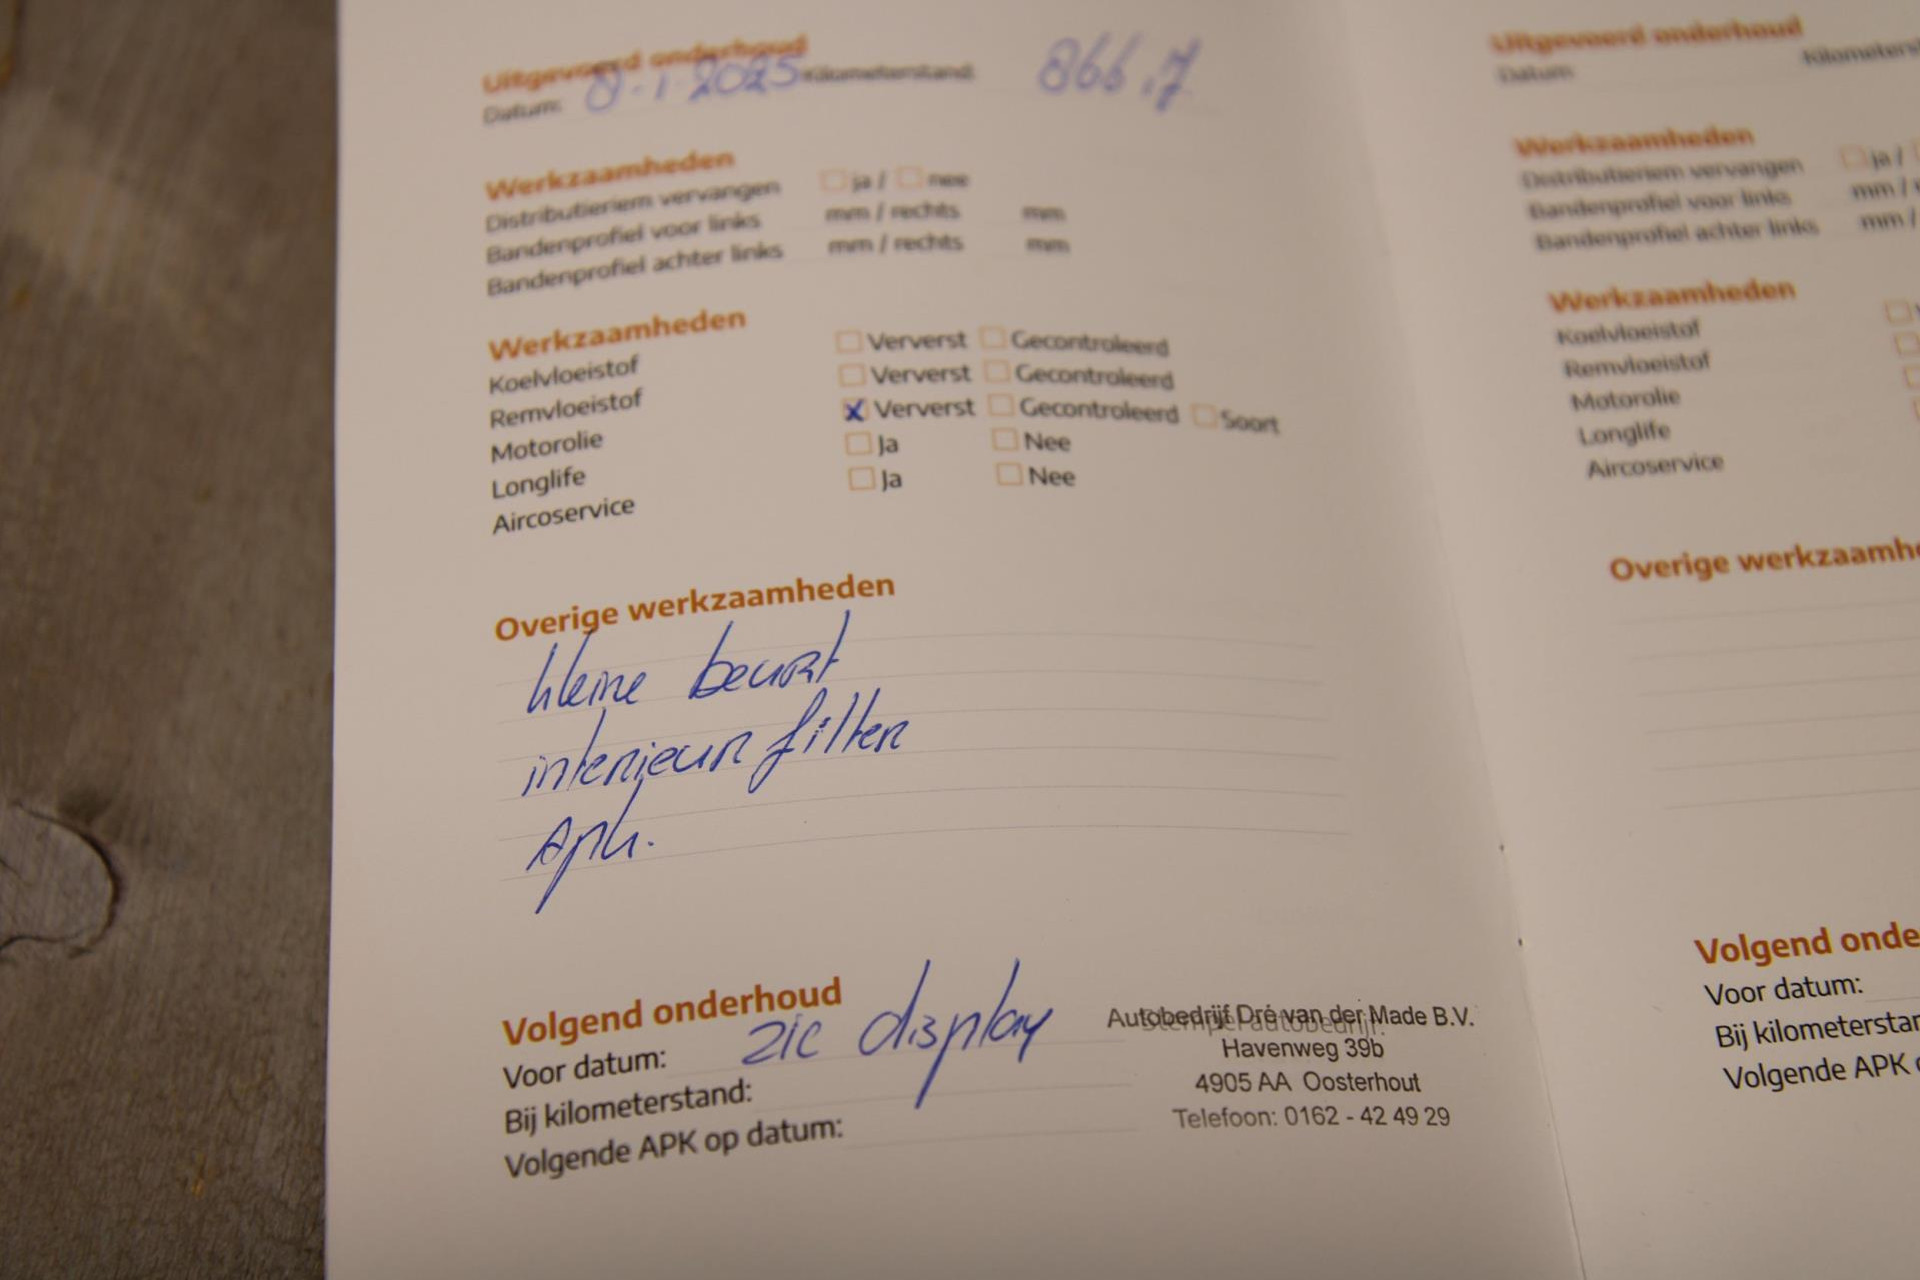 Uitgevoerd onderhoud
Datum: 8-1-2025 Kilometerstand:
Werkzaamheden
Distributieriem vervangen ja / nee
Bandenprofiel voor links mm / rechts mm
Bandenprofiel achter links mm / rechts mm
Werkzaamheden
Koelvloeistof Ververst Gecontroleerd
Remvloeistof Ververst Gecontroleerd
Motorolie x Ververst Gecontroleerd Soort
Longlife Ja Nee
Aircoservice Ja Nee
Overige werkzaamheden
kleine beurt
interieur filter
Apk.
Volgend onderhoud
Voor datum: zie display
Bij kilometerstand:
Volgende APK op datum:
Stempel autobedrijf:
Autobedrijf Dré van der Made B.V.
Havenweg 39b
4905 AA Oosterhout
Telefoon: 0162 - 42 49 29
Uitgevoerd onderhoud
Datum: Kilometers
Werkzaamheden
Distributieriem vervangen ja /
Bandenprofiel voor links mm /
Bandenprofiel achter links mm /
Werkzaamheden
Koelvloeistof
Remvloeistof
Motorolie
Longlife
Aircoservice
Overige werkzaamhe
Volgend onde
Voor datum:
Bij kilometerstan
Volgende APK o